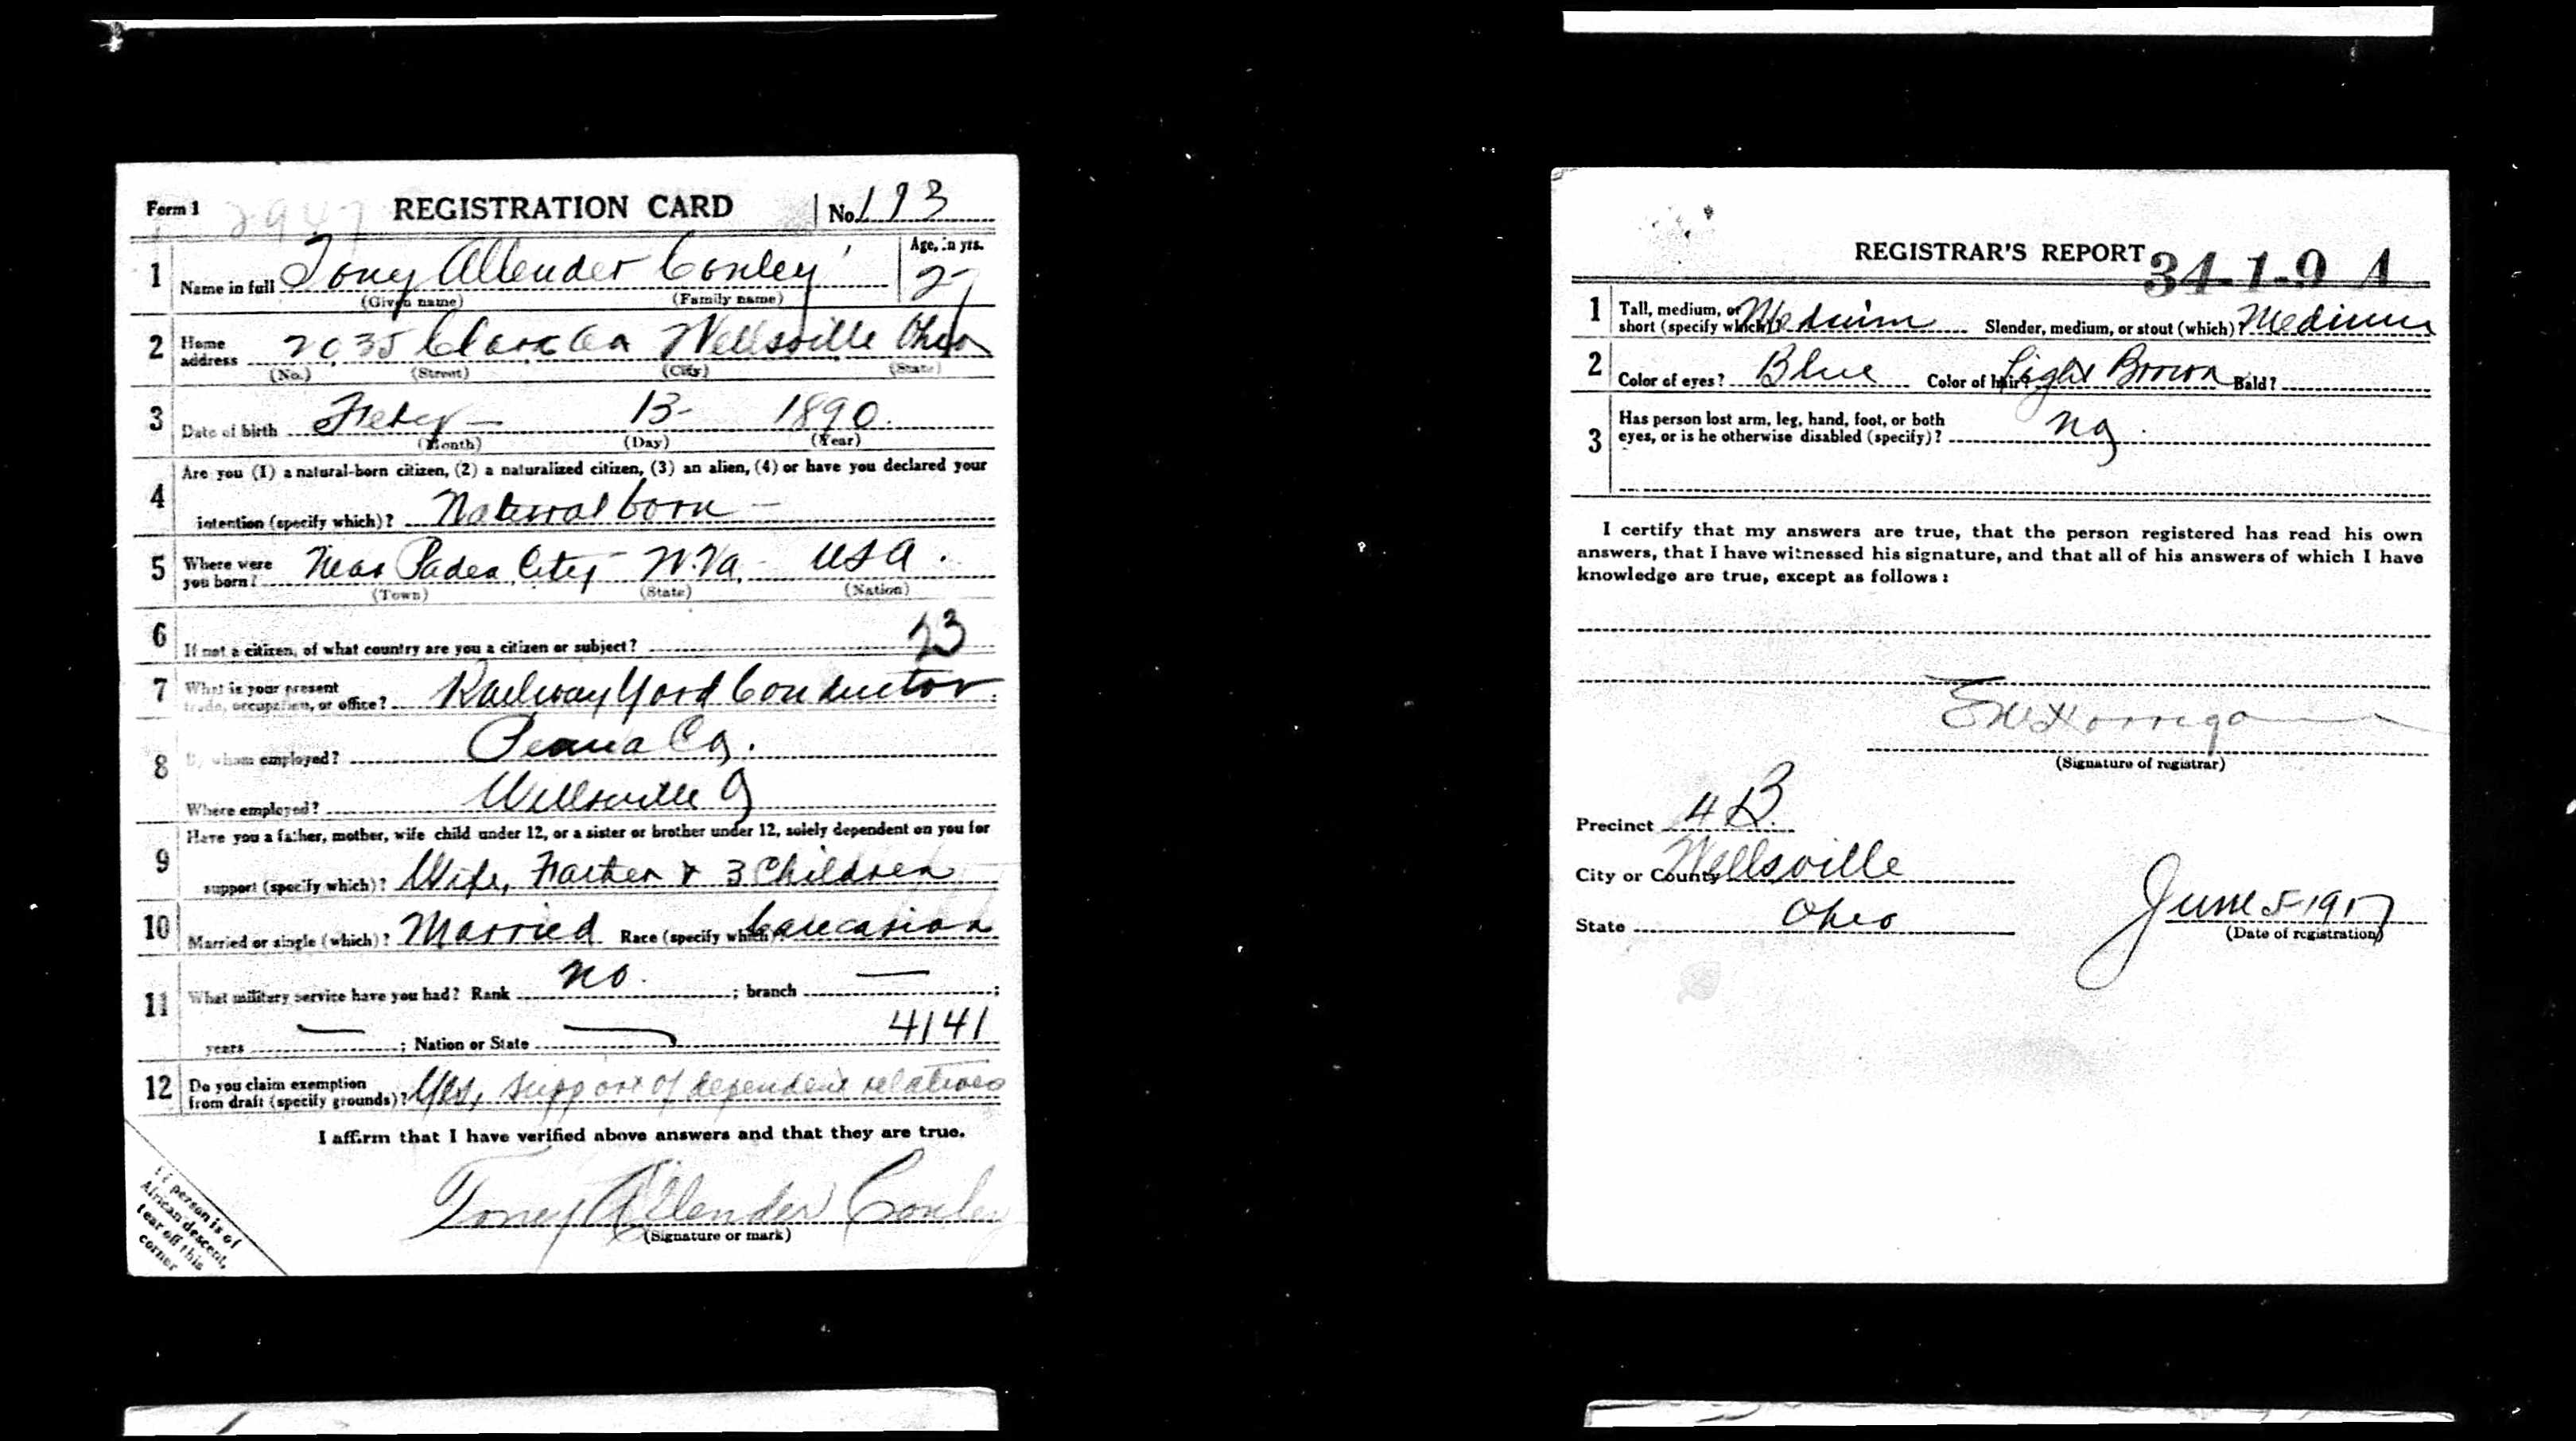 Form 1 2947 REGISTRATION CARD No. 193
1 Name in full Tony Allender Conley Age, in yrs. 27
(Given name) (Family name)
2 Home address 2035 Clark Ave Wellsville Ohio
(No.) (Street) (City) (State)
3 Date of birth Feby — 13 - 1890.
(Month) (Day) (Year)
4 Are you (1) a natural-born citizen, (2) a naturalized citizen, (3) an alien, (4) or have you declared your
intention (specify which)? Natural born —
5 Where were you born? Near Paden City - W.Va. - USA.
(Town) (State) (Nation)
6 If not a citizen, of what country are you a citizen or subject? 23
7 What is your present trade, occupation, or office? Railway Yard Conductor
8 By whom employed? Penna Co.
Where employed? Wellsville O
9 Have you a father, mother, wife child under 12, or a sister or brother under 12, solely dependent on you for
support (specify which)? Wife, Father & 3 Children
10 Married or single (which)? Married Race (specify which)? Caucasian
11 What military service have you had? Rank no. ; branch — ;
years — ; Nation or State — 4141
12 Do you claim exemption from draft (specify grounds)? Yes, support of dependent relatives
I affirm that I have verified above answers and that they are true.
Toney Allender Conley
(Signature or mark)
If person is of
African descent,
tear off this
corner
REGISTRAR'S REPORT 34-1-9 A
1 Tall, medium, or short (specify which)? Medium Slender, medium, or stout (which)? Medium
2 Color of eyes? Blue Color of hair? Light Brown Bald?
3 Has person lost arm, leg, hand, foot, or both
eyes, or is he otherwise disabled (specify)? no.
I certify that my answers are true, that the person registered has read his own
answers, that I have witnessed his signature, and that all of his answers of which I have
knowledge are true, except as follows:
(Signature of registrar)
Precinct 4 B.
City or County Wellsville
State Ohio
June 5 1917
(Date of registration)